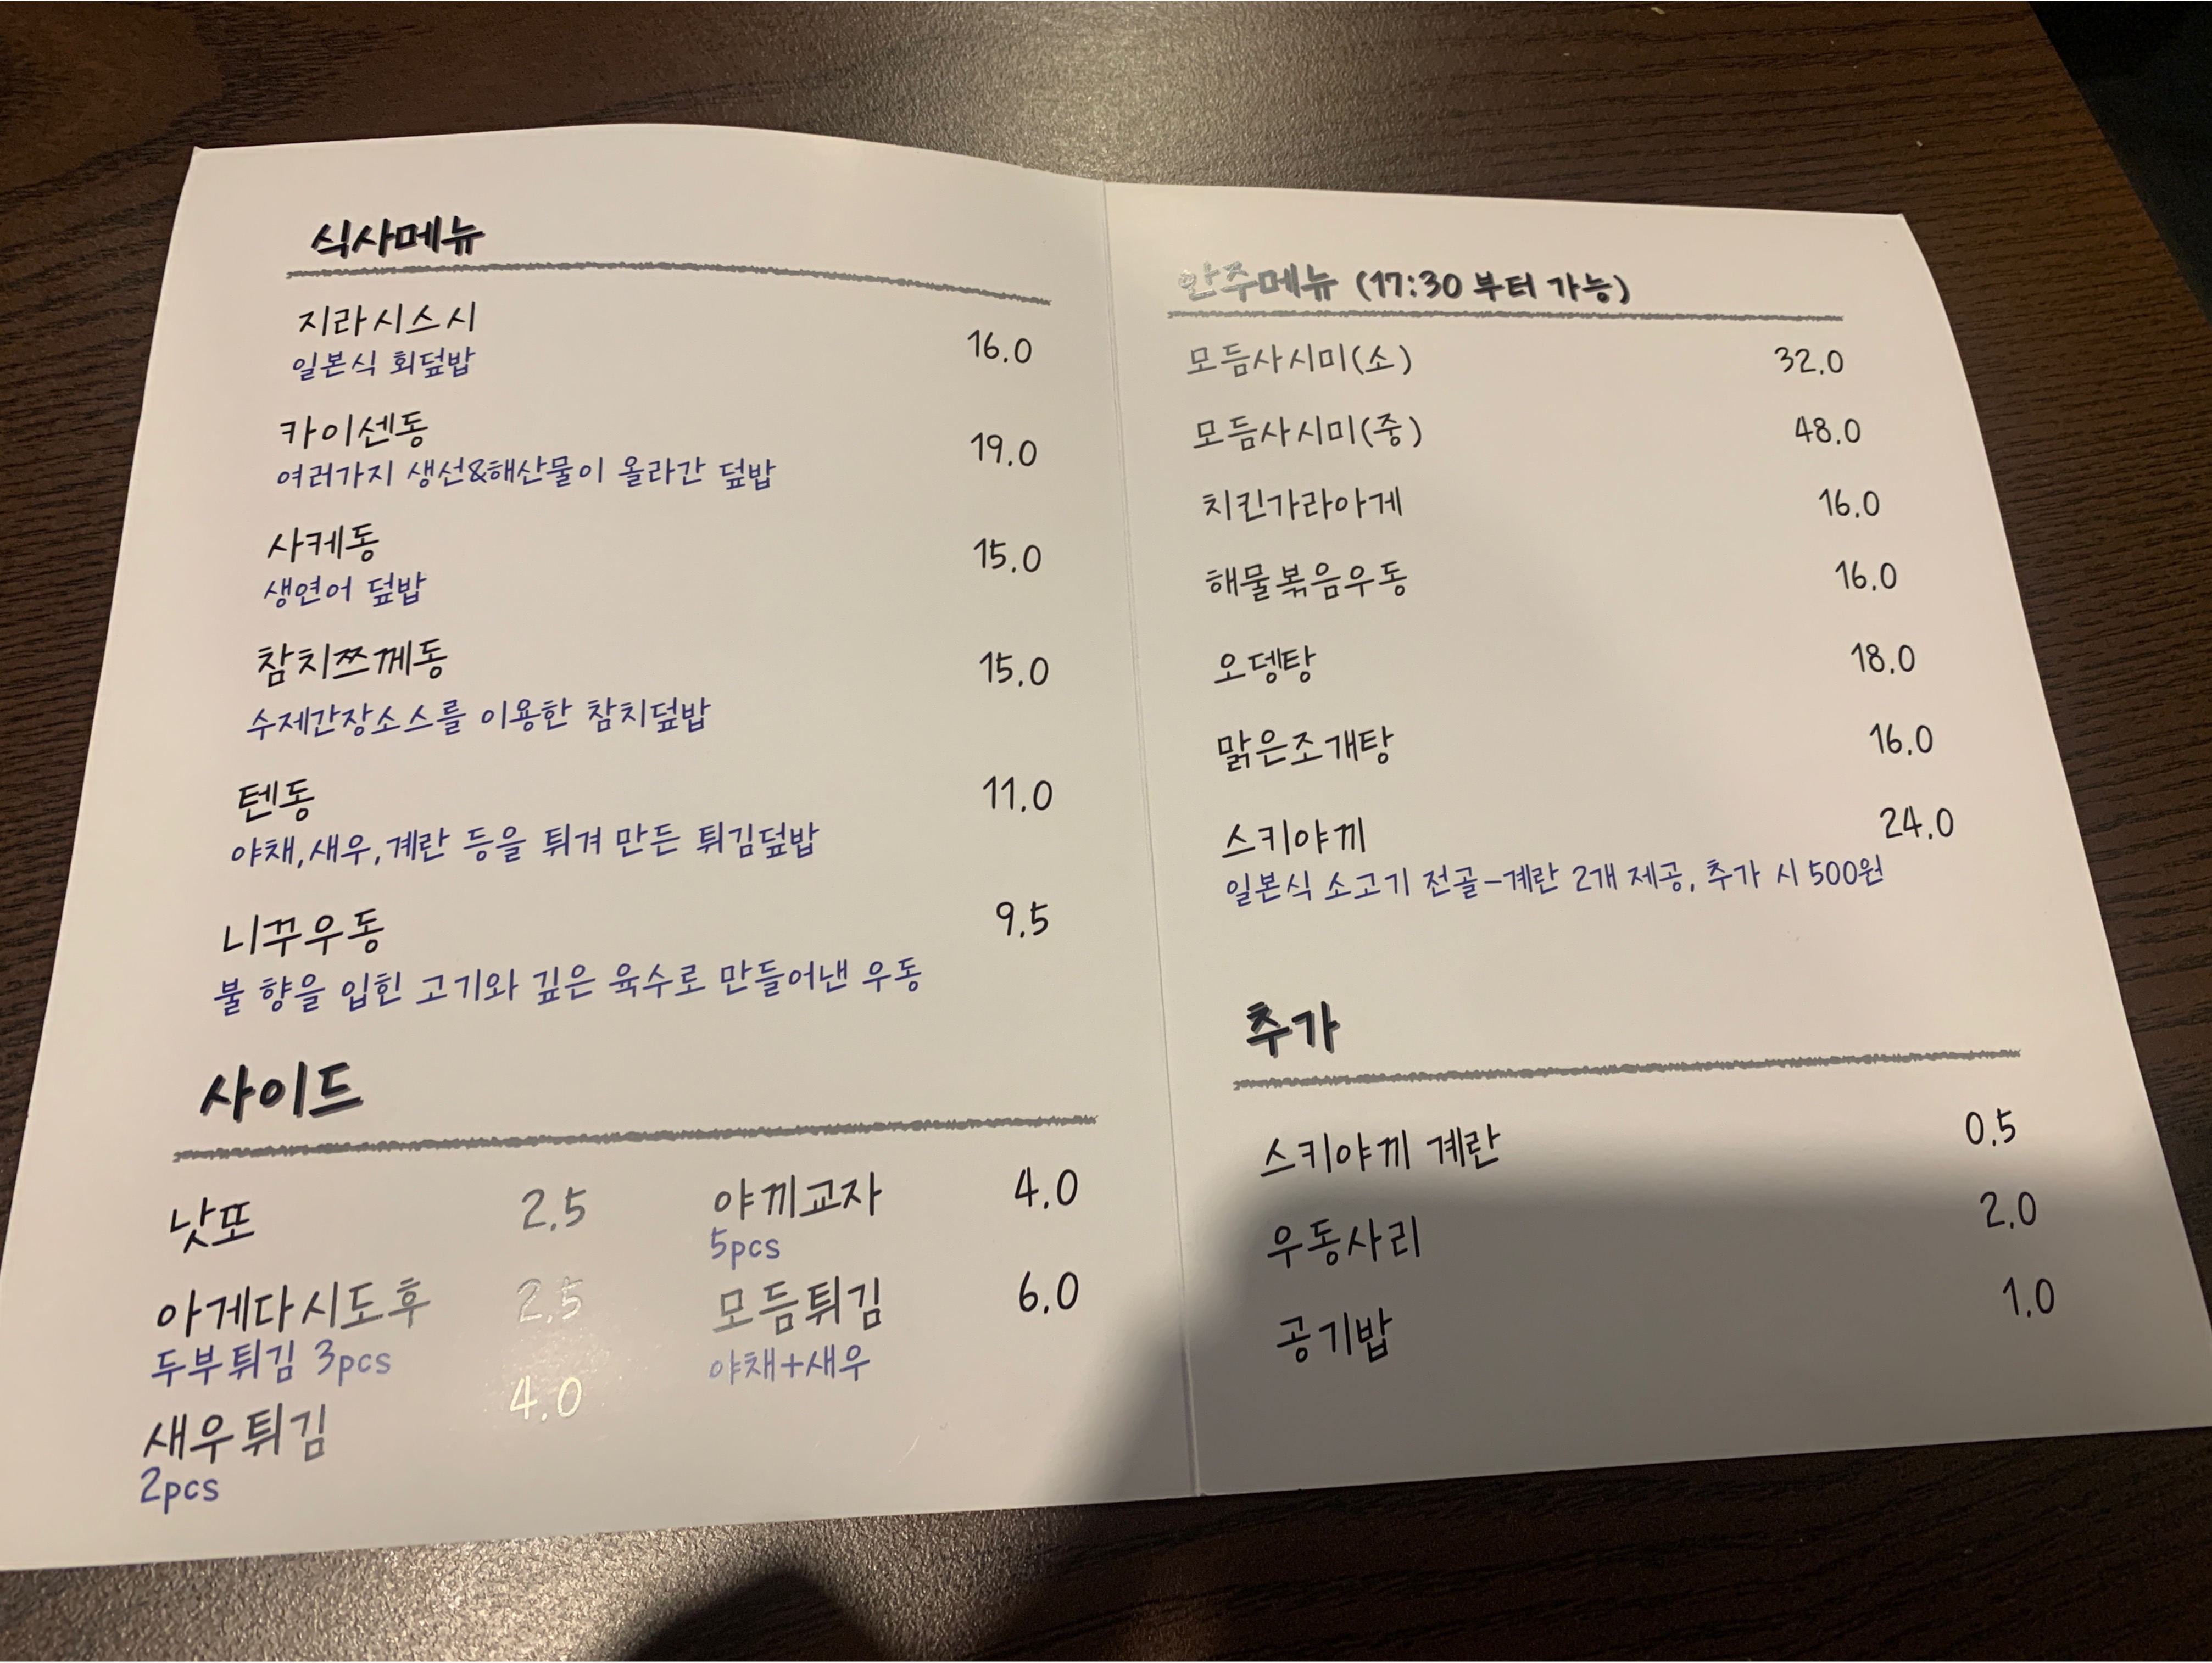 식사메뉴
지라시스시 16.0
일본식 회덮밥
카이센동 19.0
여러가지 생선&해산물이 올라간 덮밥
사케동 15.0
생연어 덮밥
참치쯔께동 15.0
수제간장소스를 이용한 참치덮밥
텐동 11.0
야채,새우,계란 등을 튀겨 만든 튀김덮밥
니꾸우동 9.5
불 향을 입힌 고기와 깊은 육수로 만들어낸 우동
사이드
낫또 2.5
아게다시도후 2.5
두부튀김 3pcs
새우튀김 4.0
2pcs
야끼교자 4.0
5pcs
모듬튀김 6.0
야채+새우
안주메뉴 (17:30 부터 가능)
모듬사시미(소) 32.0
모듬사시미(중) 48.0
치킨가라아게 16.0
해물볶음우동 16.0
오뎅탕 18.0
맑은조개탕 16.0
스키야끼 24.0
일본식 소고기 전골-계란 2개 제공, 추가 시 500원
추가
스키야끼 계란 0.5
우동사리 2.0
공기밥 1.0